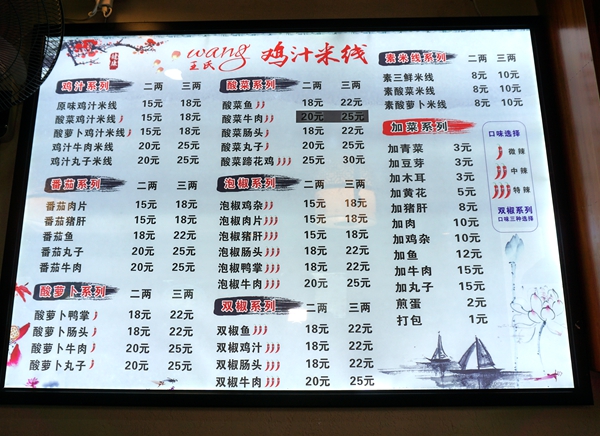 wang
王氏 鸡汁米线
鸡汁系列 二两 三两
原味鸡汁米线 15元 18元
酸菜鸡汁米线 15元 18元
酸萝卜鸡汁米线 15元 18元
鸡汁牛肉米线 20元 25元
鸡汁丸子米线 20元 25元
番茄系列 二两 三两
番茄肉片 15元 18元
番茄猪肝 15元 18元
番茄鱼 18元 22元
番茄丸子 20元 25元
番茄牛肉 20元 25元
酸萝卜系列 二两 三两
酸萝卜鸭掌 18元 22元
酸萝卜肠头 18元 22元
酸萝卜牛肉 20元 25元
酸萝卜丸子 20元 25元
酸菜系列 二两 三两
酸菜鱼 18元 22元
酸菜牛肉 20元 25元
酸菜肠头 18元 22元
酸菜丸子 20元 25元
酸菜蹄花鸡 25元 30元
泡椒系列 二两 三两
泡椒鸡杂 15元 18元
泡椒肉片 15元 18元
泡椒猪肝 15元 18元
泡椒肠头 18元 22元
泡椒鸭掌 18元 22元
泡椒牛肉 20元 25元
双椒系列 二两 三两
双椒鱼 18元 22元
双椒鸡汁 18元 22元
双椒肠头 18元 22元
双椒牛肉 20元 25元
素米线系列 二两 三两
素三鲜米线 8元 10元
素酸菜米线 8元 10元
素酸萝卜米线 8元 10元
加菜系列
加青菜 3元
加豆芽 3元
加木耳 3元
加黄花 5元
加猪肝 8元
加肉 10元
加鸡杂 10元
加鱼 12元
加牛肉 15元
加丸子 15元
煎蛋 2元
打包 1元
口味选择
微辣
中辣
特辣
双椒系列
口味三种选择